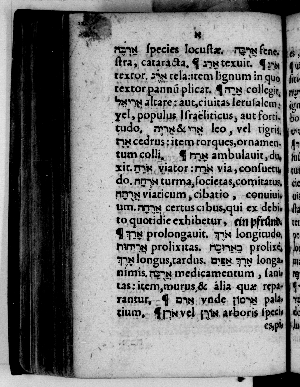 א
אַרְבֶּה species locustæ. אֲרֻבָּה fene-
stra, cataracta, ¶ אָרַג texuit. ¶
textor. אֶרֶג tela: item lignum in quo
textor pannũ plicat. ¶ אָרָה collegit,
אֲרִיאֵל altare: aut, ciuitas Ierusalem:
vel, populus Israëliticus, aut forti-
tudo, אֲרִי & אַרְיֵה leo, vel tigris,
אֶרֶז cedrus: item torques, ornamen-
tum colli. ¶ אָרַח ambulauit, du-
xit. אֹרֵחַ viator: אֹרַח via, consuetu-
do, אֹרְחָה turma, societas, comitatus,
אֲרֻחָה viaticum, cibatio, conuiui-
um. אֲרֻחָה certus cibus, qui ex debi-
to quotidie exhibetur, ein pfründ.
¶ אָרַךְ prolongauit. אֹרֶךְ longitudo,
אֲרִיכוּת prolixitas. בַּאֲרוּכָה prolixè,
אָרֹךְ longus, tardus. אֶרֶךְ אַפַּיִם longa-
nimis. אֲרוּכָה medicamentum, sani-
tas: item, murus, & alia quæ repa-
rantur. ¶ ארם vnde אַרְמוֹן pala-
tium. ¶ אֹרֶן vel אֳרָן arboris speci-
es, pi-